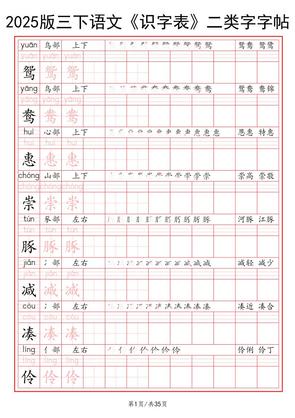 2025版三下语文《识字表》二类字字帖
yuān 鸟部 上下 鸳鸯 鸳鸳
鸳 鸳 鸳
yāng 鸟部 上下 鸳鸯 鸯锦
鸯 鸯 鸯
huì 心部 上下 恩惠 特惠
惠 惠 惠
chóng 山部 上下 崇高 崇敬
崇 崇 崇
tún 左右 河豚 江豚
豚 豚 豚
jiǎn 冫部 左右 减轻 减少
减 减 减
còu 冫部 左右 凑近 凑合
凑 凑 凑
líng 亻部 左右 伶俐 伶丁
伶 伶 伶
第1页/共35页